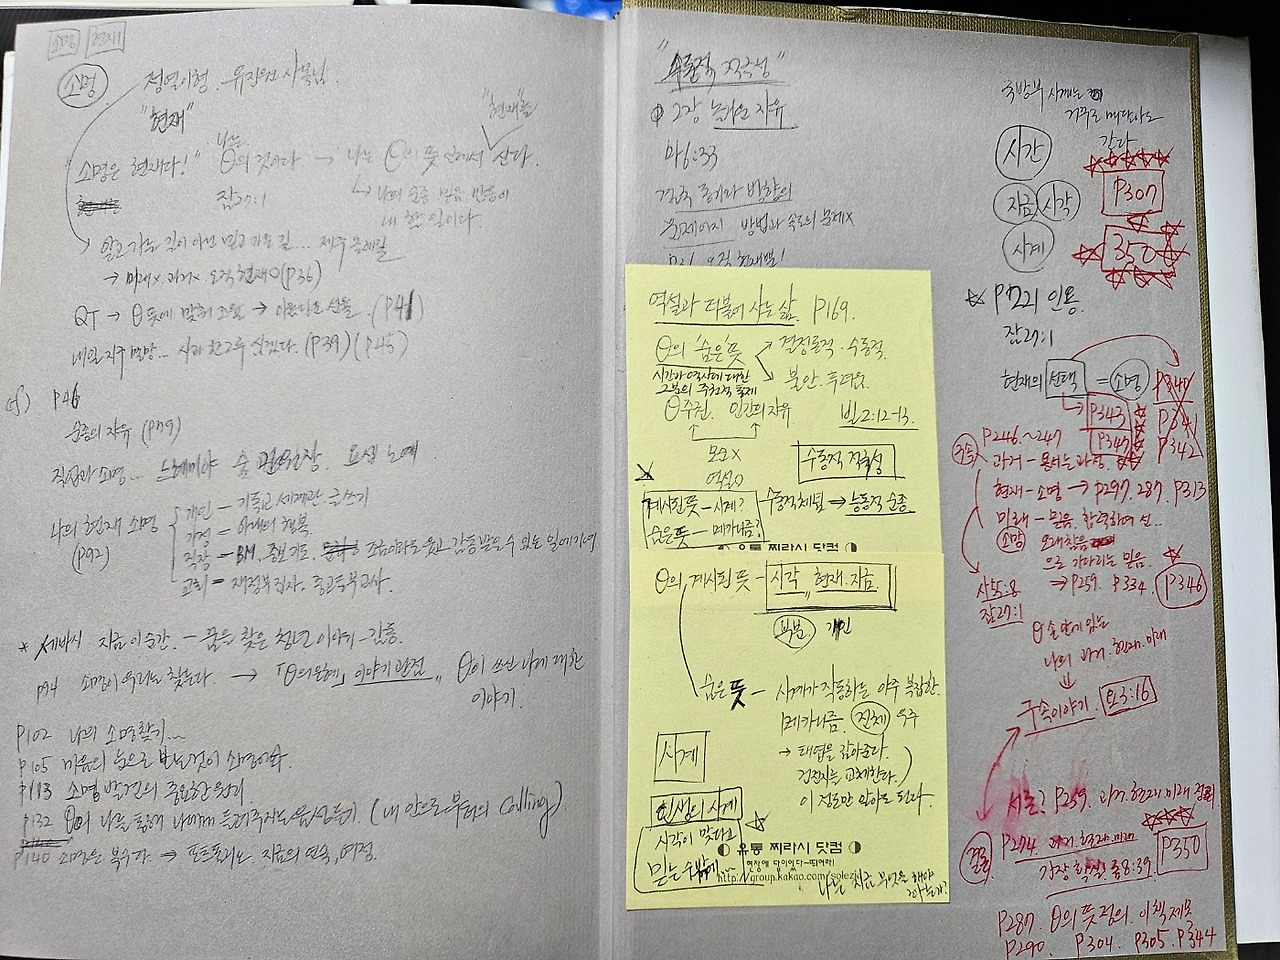 소명 현재
소명
"현재"
"현재"를
"소명은 현재다!" 나는 θ의 것이다 → 나는 θ의 뜻 안에서 산다.
잠27:1
↳ 나의 순종 믿음 반응이
내 할 일이다.
알고 가는 길이 아닌 믿고 가는 길... 제주 올레길
→ 미래x. 과거x. 오직 현재O (P36)
QT → θ 뜻에 맞춰 조율 → 아름다운 선율. (P41)
내일 지구 멸망... 사과 한그루 심겠다. (P39) (P45)
cf) P46
순종의 자유 (P79)
직업과 소명... 느헤미야 술 관원장. 요셉 노예
나의 현재 소명
(P92)
개인 - 기독교 세계관. 글쓰기
가정 = 아내의 행복
직장 = BM. 중보기도. 조금이라도 웃고 감동받을 수 있는 일에 기여
교회 = 재정부 집사. 중고등부 교사.
* 세바시 지금 이 순간. - 꿈을 찾은 청년 이야기 -
P94 소명이 우리를 찾는다. → 「θ의 은혜」 이야기 관점,, θ이 쓰신 나에 대한
이야기.
P102 나의 소명찾기...
P105 마음의 눈으로 보는것이 소명이다.
P113 소명 발견의 중요한 원리.
P132 θ이 나를 통해 나에게 들려주시는 음성듣기. (내 안으로부터의 Calling)
P140 소명은 복수다. ⇒ 포트폴리오. 지금의 연속, 여정.
"수동적 적극성"
2장 놀라운 자유
마6:33
문제이지 방법과 속도의 문제x
오직 현재뿐!
역설과 더불어 사는 삶. P169.
θ의 '숨은' 뜻
결정론적. 수동적.
불안. 두려움.
시간과 역사에 대한
그분의 주권적 통제
θ주권. 인간의 자유 빌2:12-13.
모순x
역설O
수동적 적극성
계시된 뜻 - 시계?
숨은 뜻 - 메카니즘?
⇒ 능동적 순종
유통 찌라시 닷컴
θ의 계시된 뜻 - 시각,, 현재. 지금.
개인
숨은 뜻 - 시계가 작동하는 아주 복잡한
메카니즘. 전체 우주
시계
→ 태엽을 감아준다.
건전지를 교체한다.
이 정도만 알아도 된다.
인생의 시계
시각이 맞다고
믿는 수밖에...
유통 찌라시 닷컴
현장에 답이있다~뛰어라!
http://group.kakao.com/solezid
나는 지금 무엇을 해야
하는가?
국방부 시계는
거꾸로 매달아도
간다
시간
P307
지금 시각
시계
350
P221 인용.
잠27:1
현재의 선택 = 소명
P340
P341
P342
P343
P345
P246.~247
과거 - 용서는 과정.
현재 - 소명 → P297. 287. P313
미래 - 믿음.
소망
오래참음
으로 기다리는 믿음.
⇒ P259. P334. P346
사55:8
잠27:1
θ 손안에 있는
나의 과거. 현재. 미래
⇓
구속이야기. 요3:16
서론? P259. 과거. 현재 미래 정리
결론
P274. 과거. 현재. 미래
가장 확실! 롬8:39.
P350
P287. θ의 뜻 정의. 이 책 제목
P290. P304. P305. P344